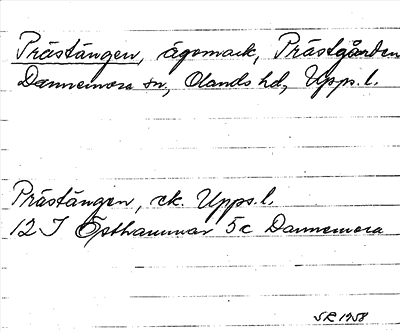 Prästängen, ägomark, Prästgården
Dannemora sn, Olands hd, Upps.l.
Prästängen, ek. Upps.l.
12 I Östhammar 5c Dannemora
SR 1958